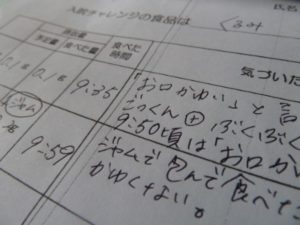 入院チャレンジの食品は くるみ
氏名
摂取量
予定量 食べた量 食べた時間
気づいた
0.1g 0.1g 9:35
「お口かゆい」と言
ごっくん⊕ ぶくぶく
9:50頃は「お口か
ジャム
9:59
ジャムで包んで食べた
かゆくない。